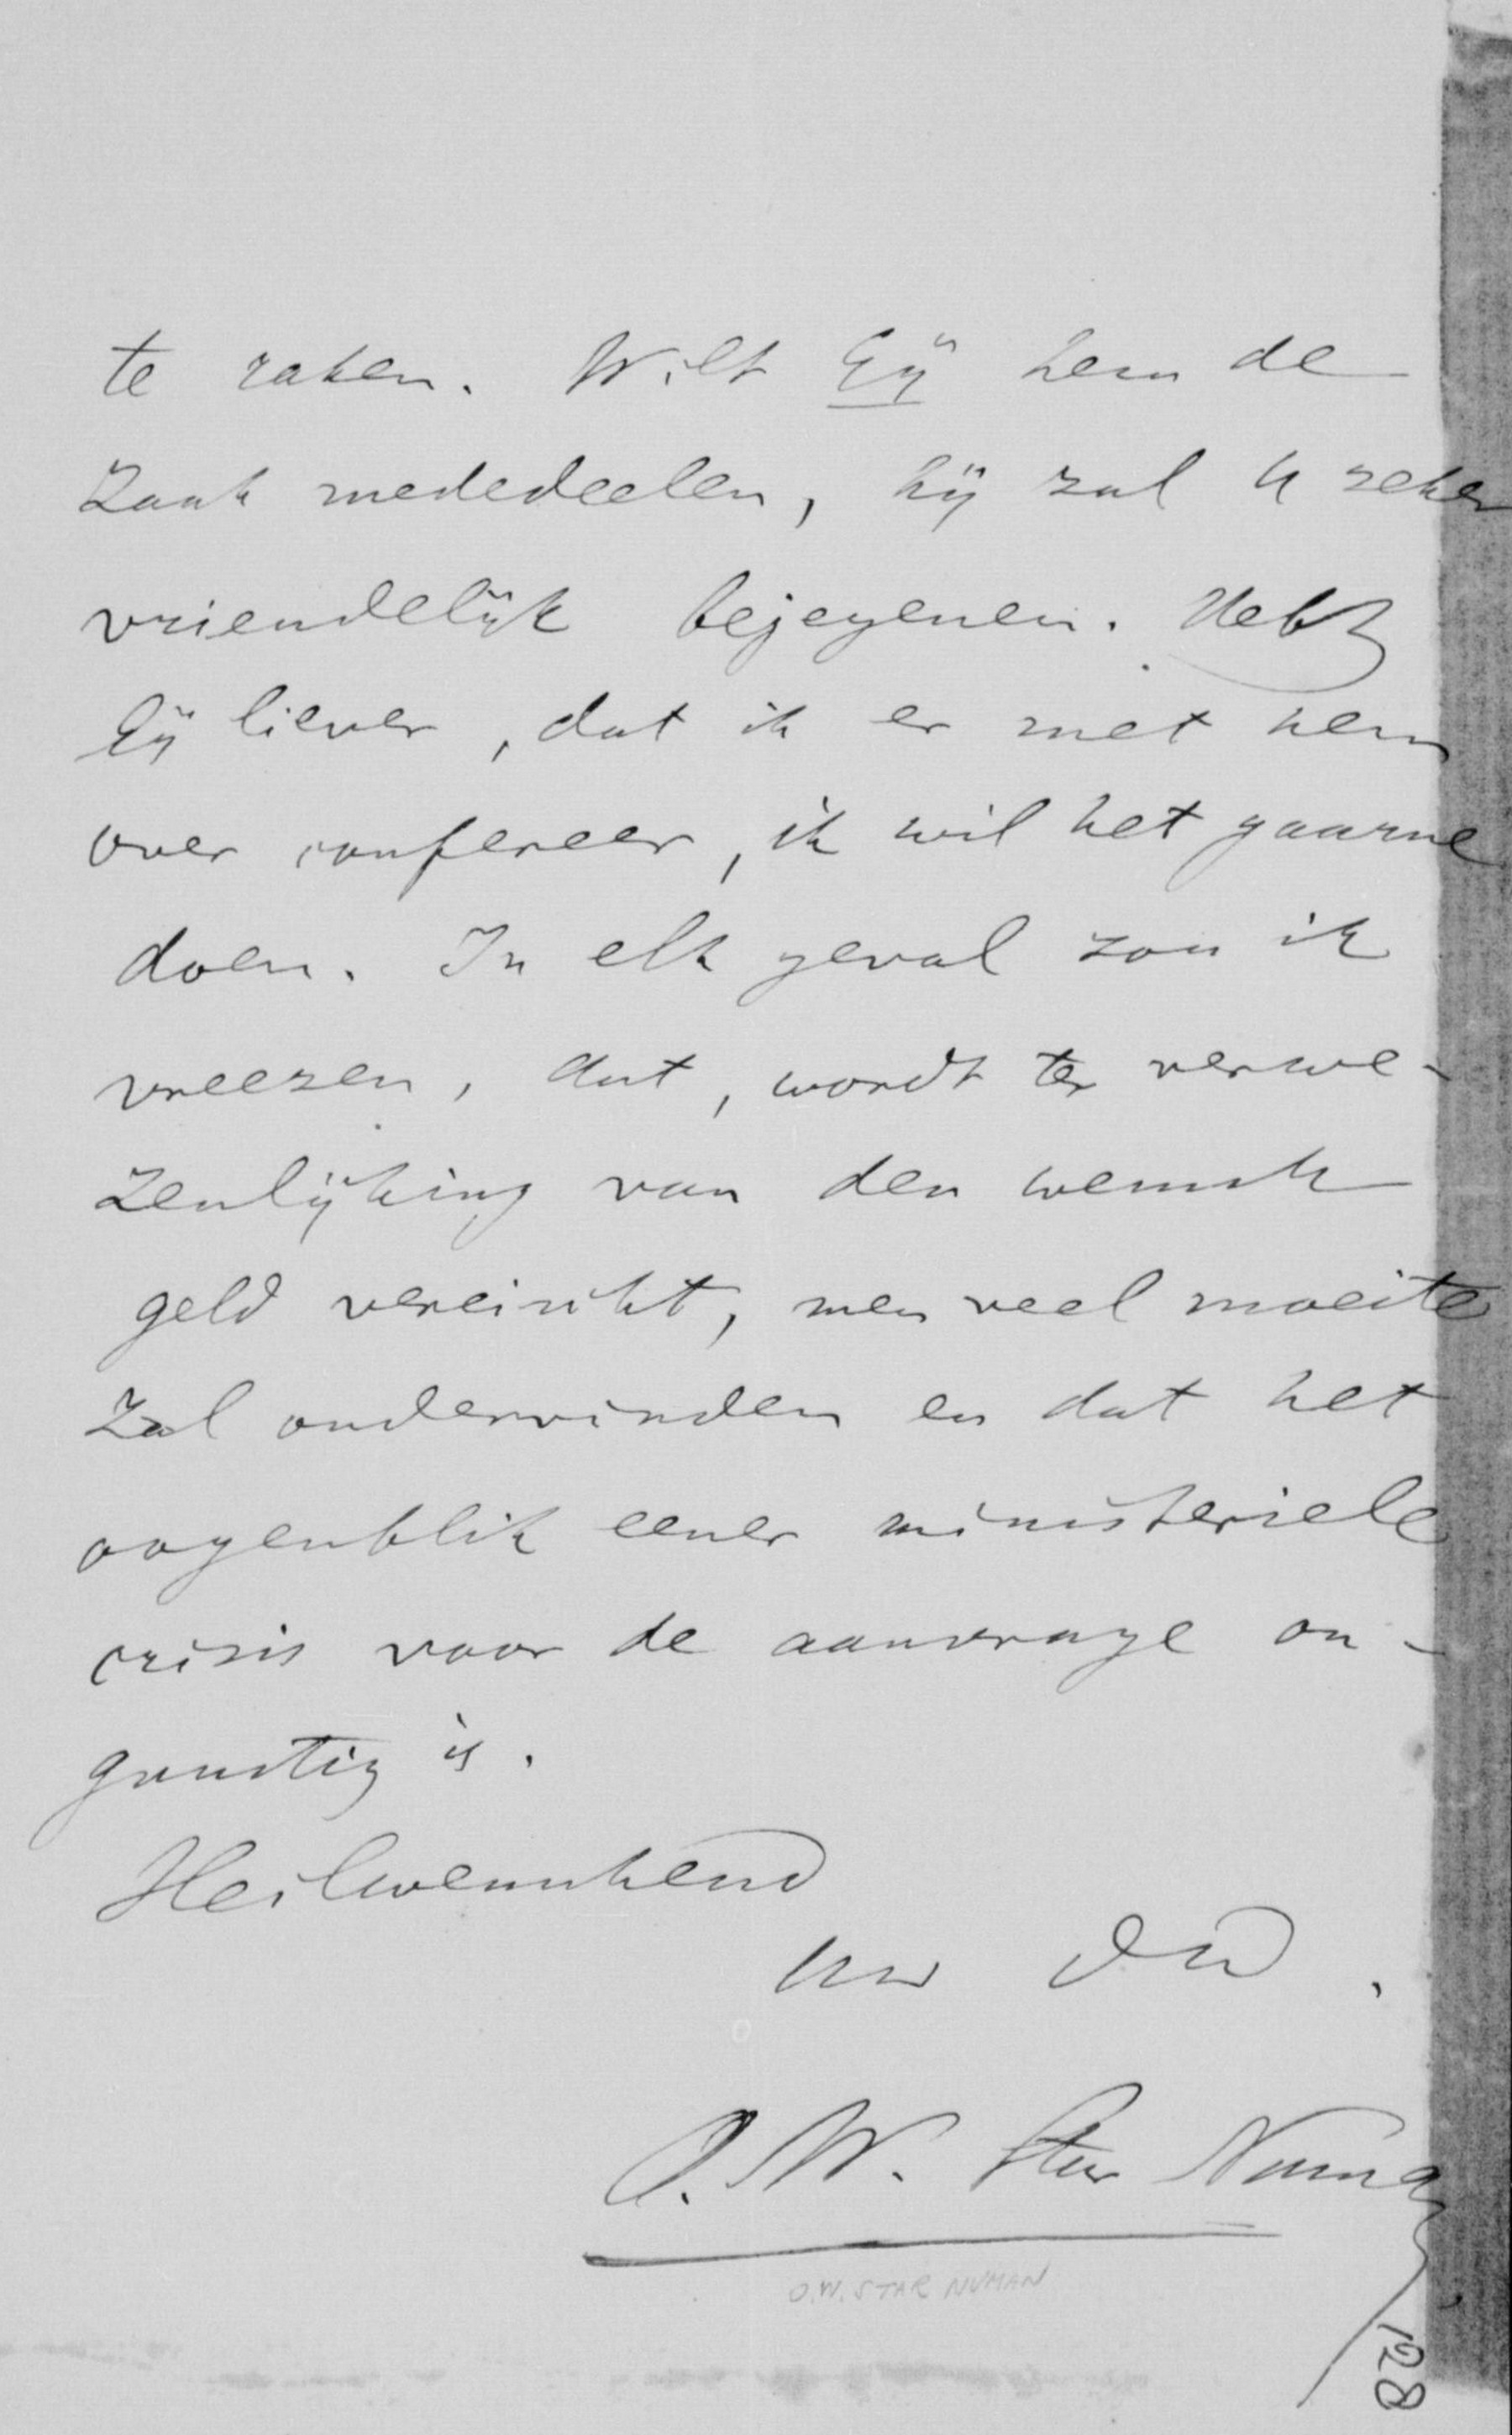 te raken. Wilt Gij hem de
zaak mededeelen, hij zal U zeker
vriendelijk bejegenen. Hebt
Gij liever, dat ik er met hem
over confereer, ik wil het gaarne
doen. In elk geval zou ik
vreezen, dat, wordt ter verwe-
zenlijking van den wensch
geld vereischt, men veel moeite
zal ondervinden en dat het
oogenblik eener ministeriele
crisis voor de aanvrage on-
gunstig is.
Heilwenschend
Uw DW.
O. W. Star Numan
O.W. STAR NUMAN
128